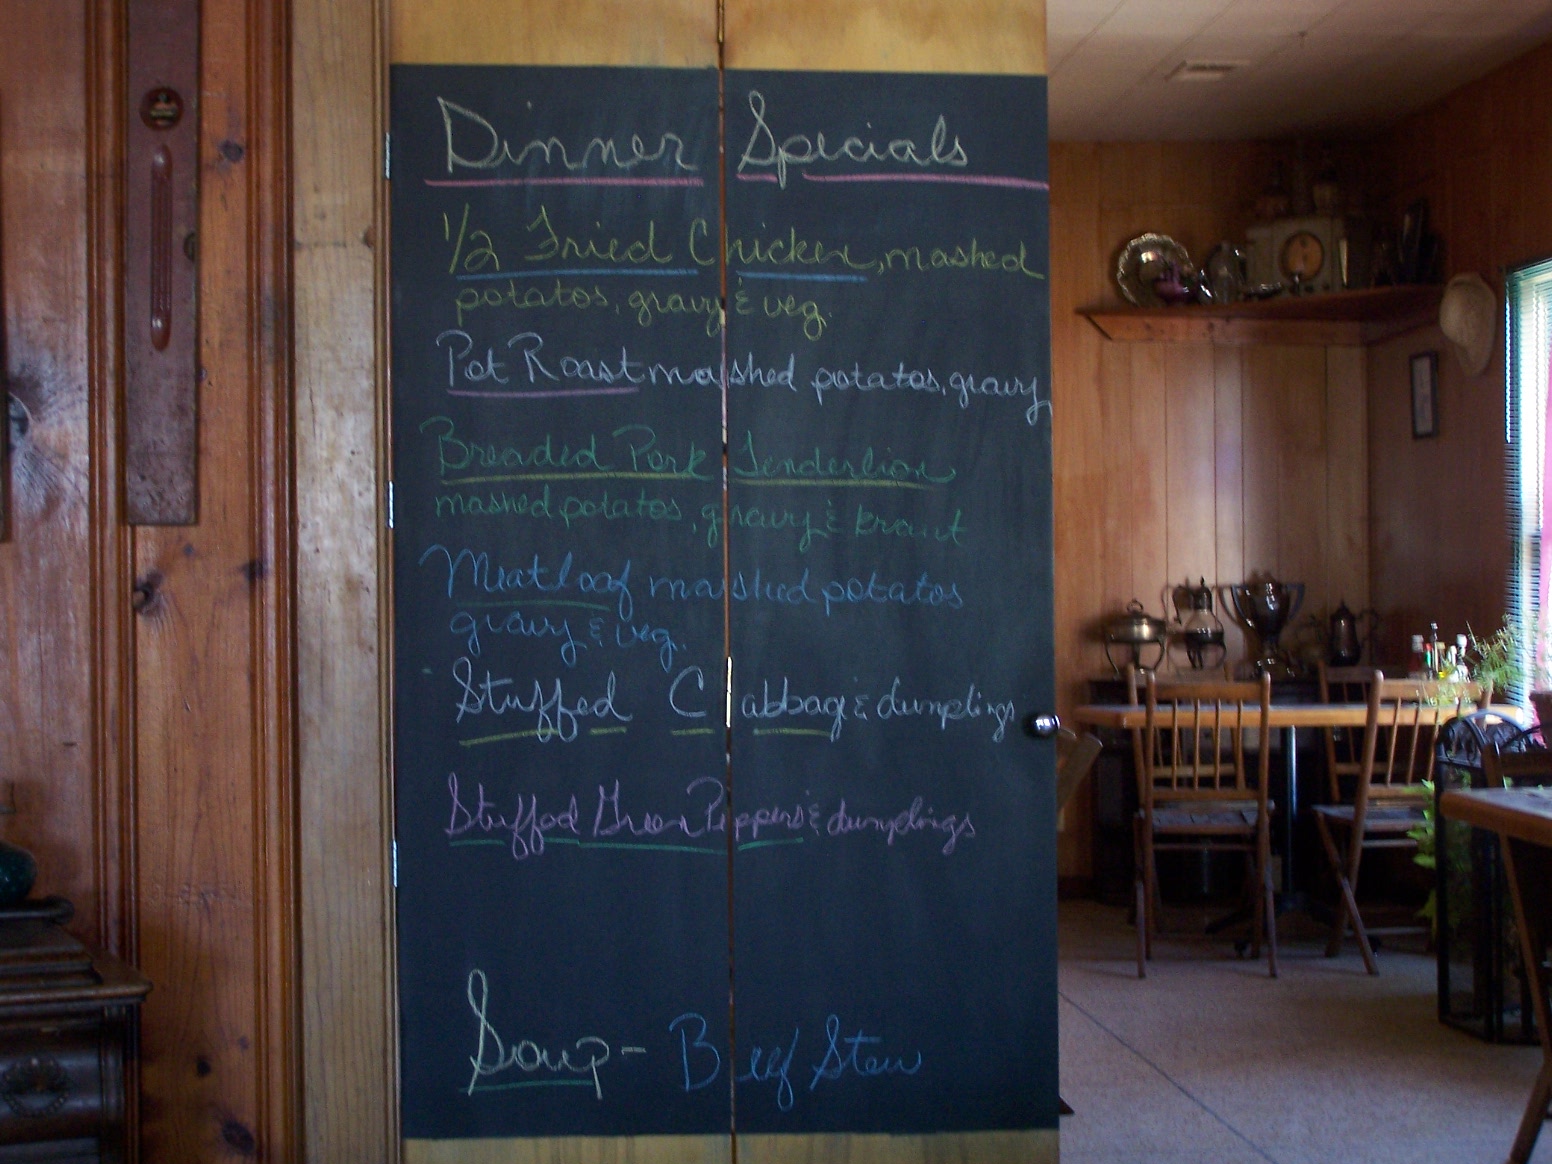 Dinner Specials
1/2 Fried Chicken, mashed
potatos, gravy & veg.
Pot Roast mashed potatos, gravy
Breaded Pork Tenderlion
mashed potatos, gravy & kraut
Meatloaf mashed potatos
gravy & veg.
Stuffed Cabbag & dumplings
Stuffed Green Peppers & dumplings
Soup - Beef Stew